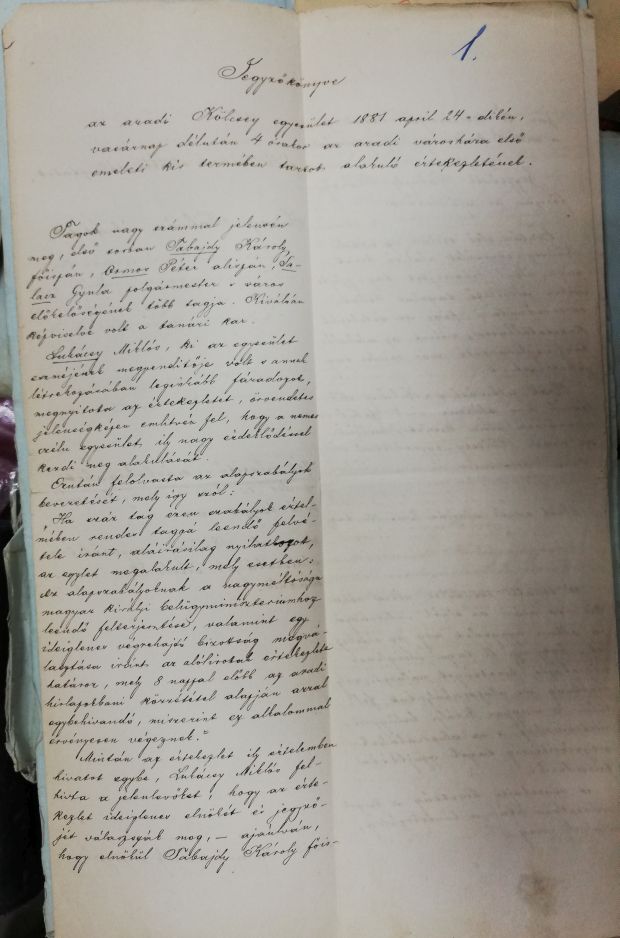 1.
Jegyzőkönyve
az aradi Kölcsey egyesület 1881 april 24-dikén,
vasárnap délután 4 órakor az aradi városháza első
emeleti kis termében tartott alakuló értekezletének.
Tagok nagy számmal jelenvén
meg, első sorban Tabajdy Károly,
főispán, Ormos Péter alispán, Sa-
lacz Gyula polgármester s város
előkelőségének több tagja. Kiválóan
képviselve volt a tanári kar.
Lukácsy Miklós, ki az egyesület
eszméjének megpendítője volt s annak
létrehozásában leginkább fáradozott,
megnyitotta az értekezletet, örvendetes
jelenségképen említvén fel, hogy a nemes
czélu egyesület ily nagy érdeklődéssel
kezdi meg alakulását.
Ezután felolvasta az alapszabályok
bevezetését, mely így szól:
Ha száz tag ezen szabályok értel-
mében rendes taggá leendő felvé-
tele iránt, aláirásilag nyilatkozott,
az egylet megalakult, mely esetben:
az alapszabályoknak a nagyméltóságu
magyar királyi belügyminiszteriumhoz
leendő felterjesztése, valamint egy
ideiglenes végrehajtó bizottság megvá-
lasztása iránt az alólirottak értekezlete
határoz, mely 8 nappal előbb az aradi
hirlapokbani közzététel alapján azzal
egybehivandó, miszerint ez alkalommal
érvényesen végeznek."
Miután az értekezlet ily értelemben
hivatott egybe, Lukácsy Miklós fel-
hivta a jelenlevőket, hogy az érte-
kezlet ideiglenes elnökét és jegyző-
jét válasszák meg, — ajánlván,
hogy elnökül Tabajdy Károly főis-